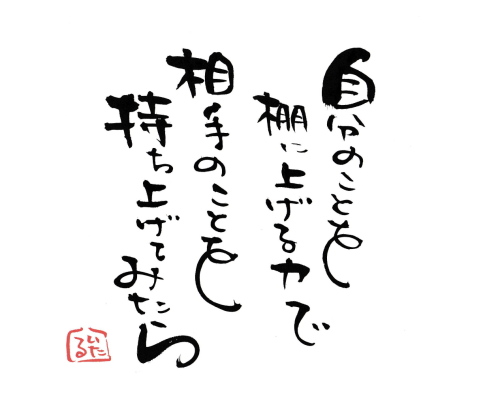 自分のことを
棚に上げる力で
相手のことを
持ち上げてみたら